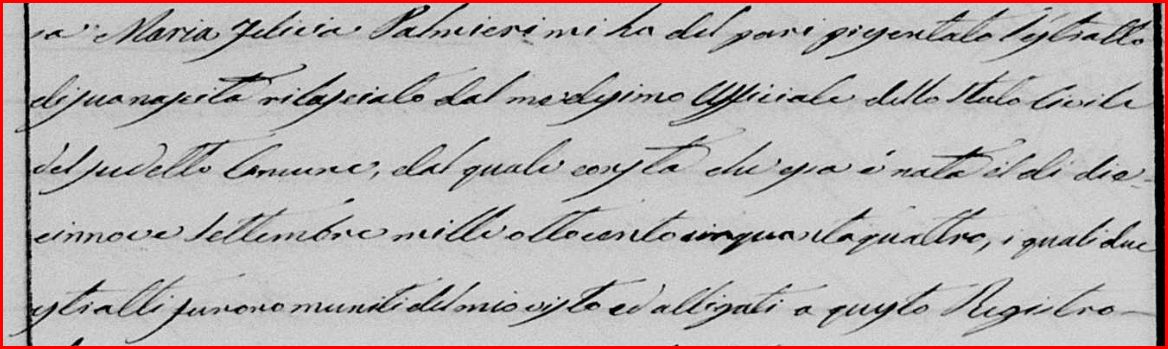 sa Maria Felicia Palmieri mi ha del pari presentato l'estratto
di sua nascita rilasciato dal medesimo Uffiziale dello Stato Civile
del sudetto Comune, dal quale consta che essa è nata il di die-
cinnove Settembre mille ottocento cinquantaquattro, i quali due
estratti furono muniti del mio visto ed alligati a questo Registro